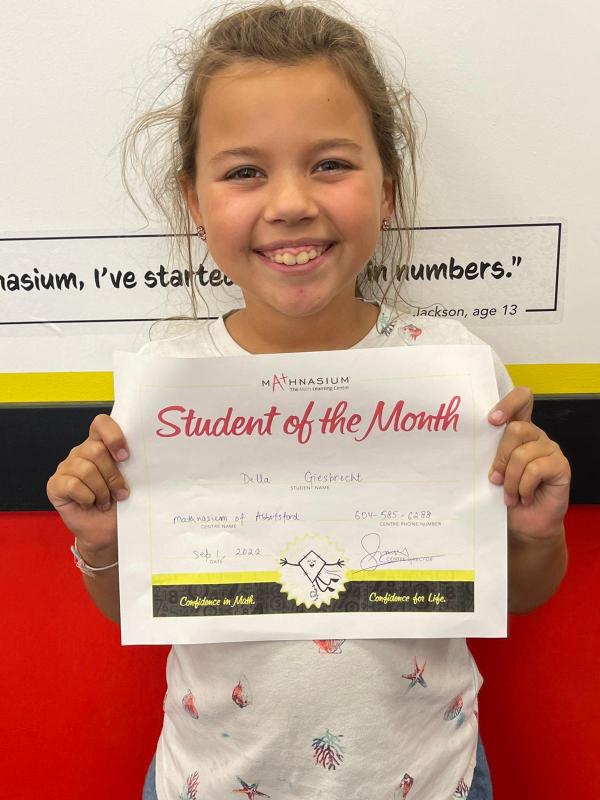 nasium, I've started in numbers."
Jackson, age 13
MATHNASIUM
The Math Learning Centre
Student of the Month
Della Giesbrecht
STUDENT NAME
Mathnasium of Abbotsford 604-585-6288
CENTRE NAME CENTRE PHONE NUMBER
Sep 1, 2022
DATE CENTRE DIRECTOR
Confidence in Math. Confidence for Life.